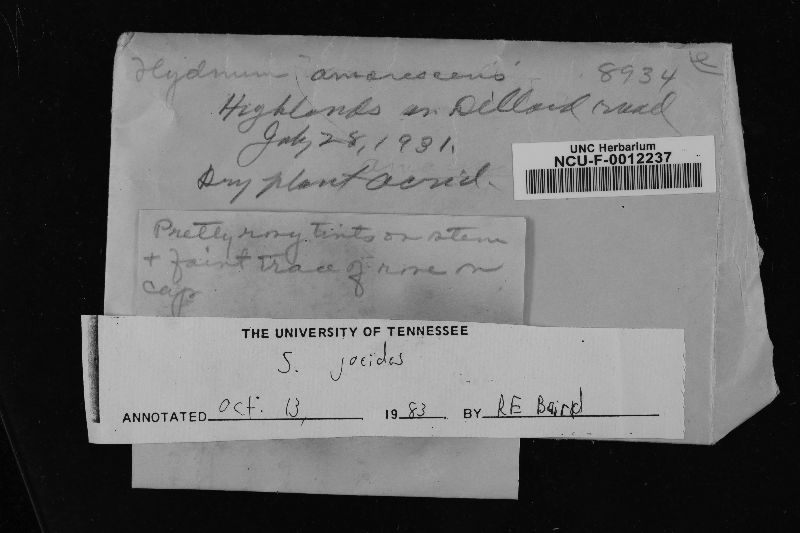 Hydnum amarescens 8934
Highlands on Dillard road
July 28, 1931.
Dry plant acrid.
UNC Herbarium
NCU-F-0012237
Pretty rosy tints on stem
+ faint trace of rose on
cap
THE UNIVERSITY OF TENNESSEE
S. joeides
ANNOTATED Oct. 13, 1983 BY RE Baird